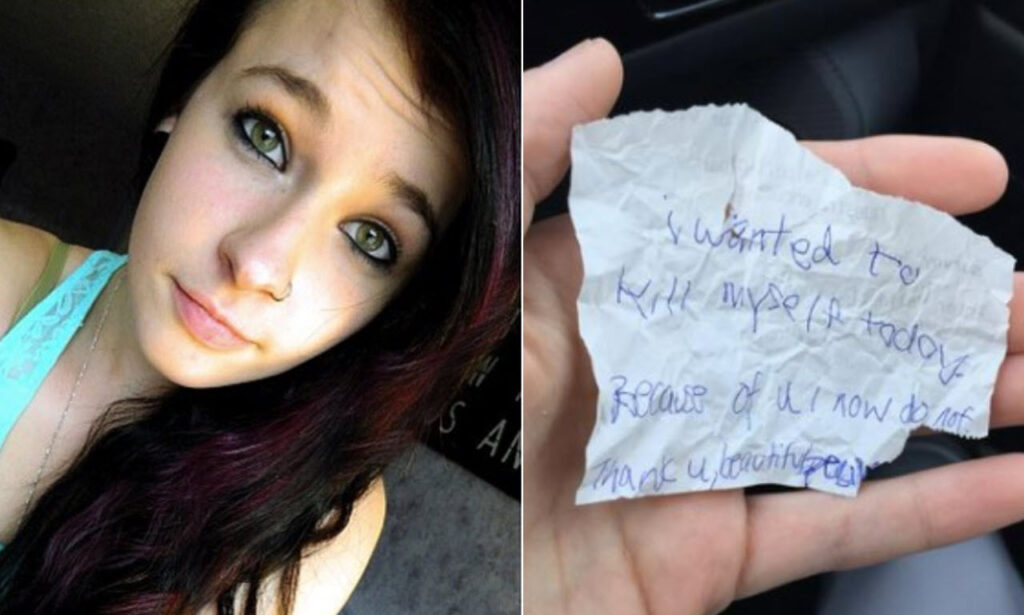 i wanted to
kill myself today.
Because of u i now do not
Thank u, beautiful
N
S AN